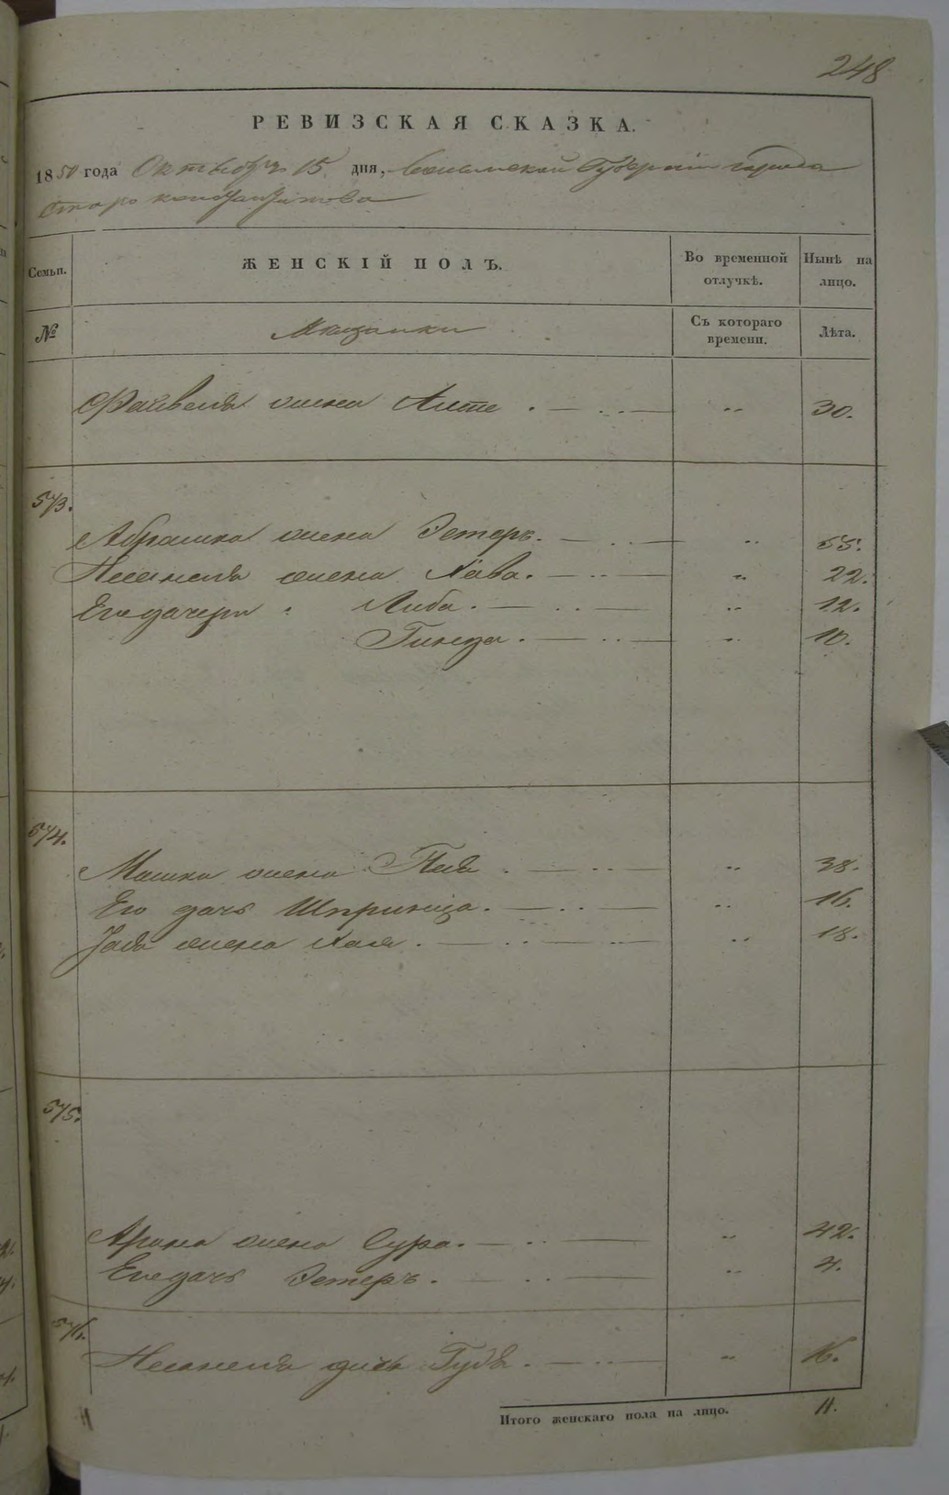 248
РЕВИЗСКАЯ СКАЗКА.
1850 года Октября 15 дня, Волынской Губернии города
Старо константинова
Семьи. ЖЕНСКІЙ ПОЛЪ. Во временной отлучкѣ. Нынѣ на лицо.
№ Мещанки Съ котораго времени. Лѣта.
Файвеля жена Алте . — . . — „ 30.
573.
Абрашка жена Эстеръ. — . . — „ 55.
жена Хава. — . . — „ 22.
Его дочери : Либа. — . . — „ 12.
Гинда. — . . — „ 10.
574.
Мошка жена . — . . — „ 38.
Его дочь Шпринца. — . . — „ 16.
жена Хая. — . . — „ 18.
575.
Арона жена Сура. — . . — „ 42.
Его дочь Эстеръ. — . . — „ 4.
576.
— . . — „ 16.
Итого женскаго пола на лицо. 11.